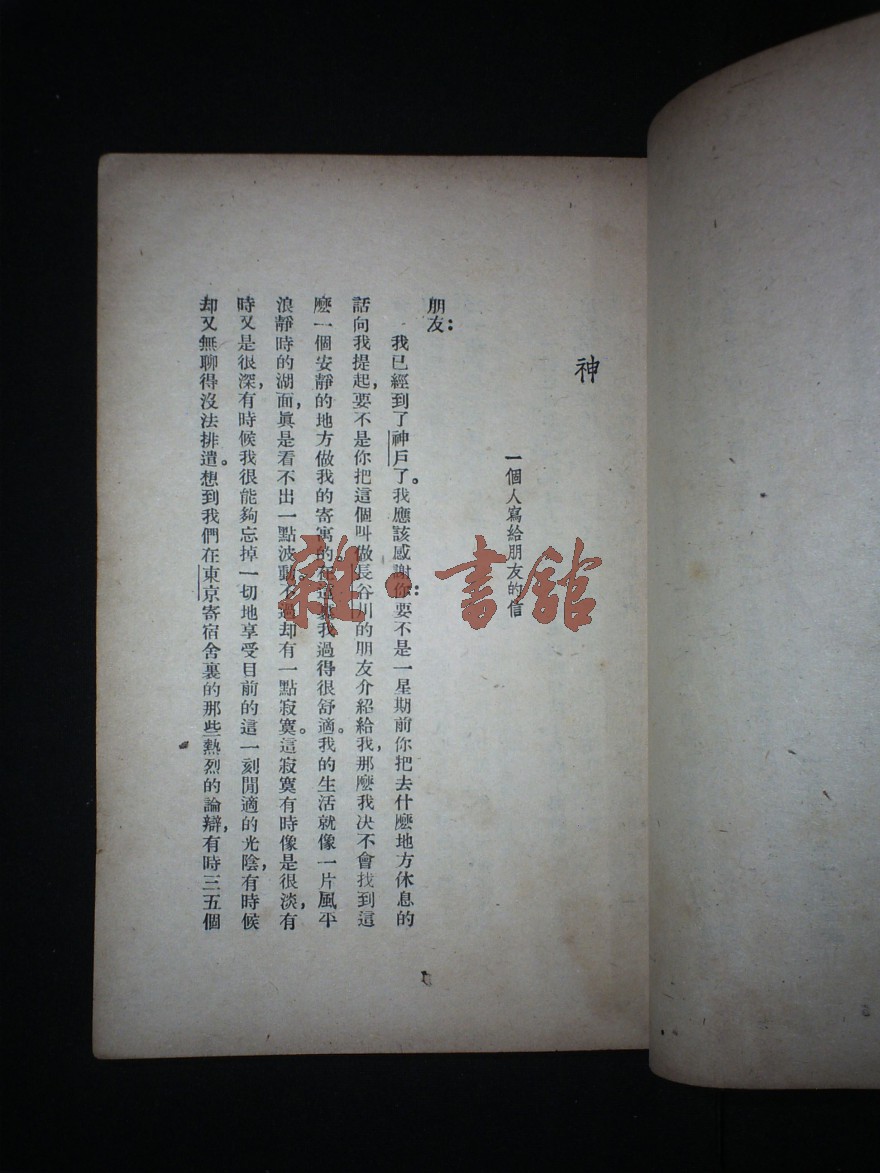 神
一個人寫給朋友的信
朋友：
我已經到了神戶了。我應該感謝你：要不是一星期前你把去什麽地方休息的
話向我提起，要不是你把這個叫做長谷川的朋友介紹給我，那麽我决不會找到這
麽一個安靜的地方做我的寄寓的。在這裏我過得很舒適。我的生活就像一片風平
浪靜時的湖面，眞是看不出一點波動。不過却有一點寂寞。這寂寞有時像是很淡，有
時又是很深，有時候我很能夠忘掉一切地享受目前的這一刻閒適的光陰，有時候
却又無聊得沒法排遣。想到我們在東京寄宿舍裏的那些熱烈的論辯，有時三五個
1
雜·書館